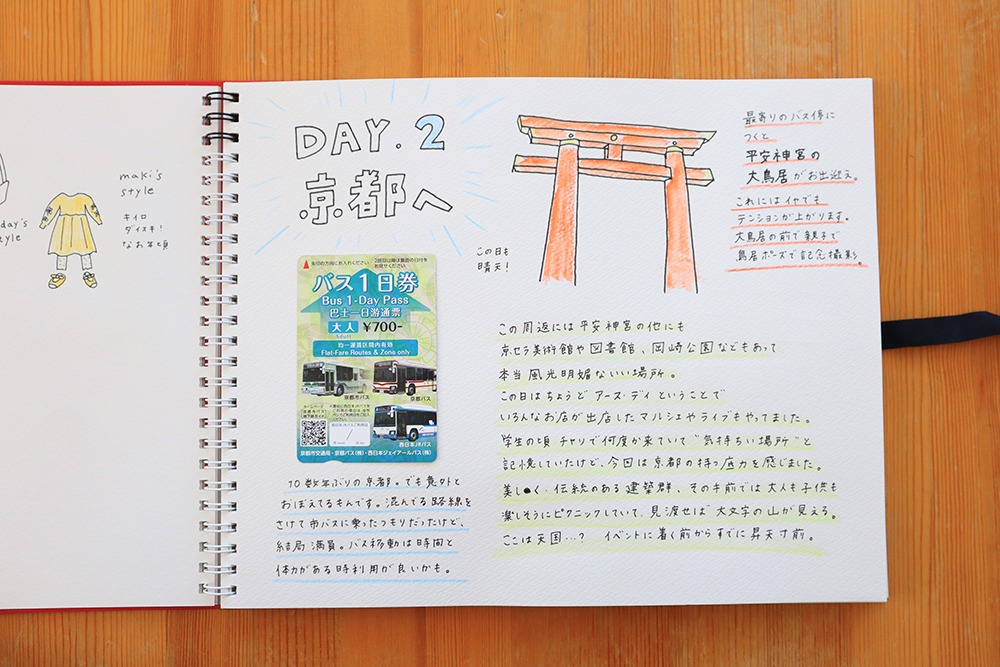 day's
tyle
maki's
style
キイロ
ダイスキ!
なお年頃
DAY.2
京都へ
矢印の方向にお入れください
2回目以降は裏面の日付を
お見せください
バス1日券
Bus 1-Day Pass
巴士一日游通票
大人 ¥700-
Adult
均一運賃区間内有効
Flat-Fare Routes & Zone only
京都市バス
京都バス
西日本JRバス
京都市交通局・京都バス(株)・西日本ジェイアールバス(株)
10数年ぶりの京都。でも意外と
おぼえてるもんです。混んでる路線を
さけて市バスに乗ったつもりだったけど、
結局満員。バス移動は時間と
体力がある時利用が良いかも。
この日も
晴天!
最寄りのバス停に
つくと
平安神宮の
大鳥居がお出迎え。
これにはイヤでも
テンションが上がります。
大鳥居の前で親子で
鳥居ポーズで記念撮影。
この周返には平安神宮の他にも
京セラ美術館や図書館、岡崎公園などもあって
本当風光明媚ないい場所。
この日はちょうどアース・デイということで
いろんなお店が出店したマルシェやライブもやってました。
学生の頃チャリで何度か来ていて"気持ちいい場所"と
記憶していたけど、今回は京都の持つ底力を感じました。
美しく・伝統のある建築群、その手前では大人も子供も
楽しそうにピクニックしていて、見渡せば大文字の山が見える。
ここは天国…? イベントに着く前からすでに昇天寸前。